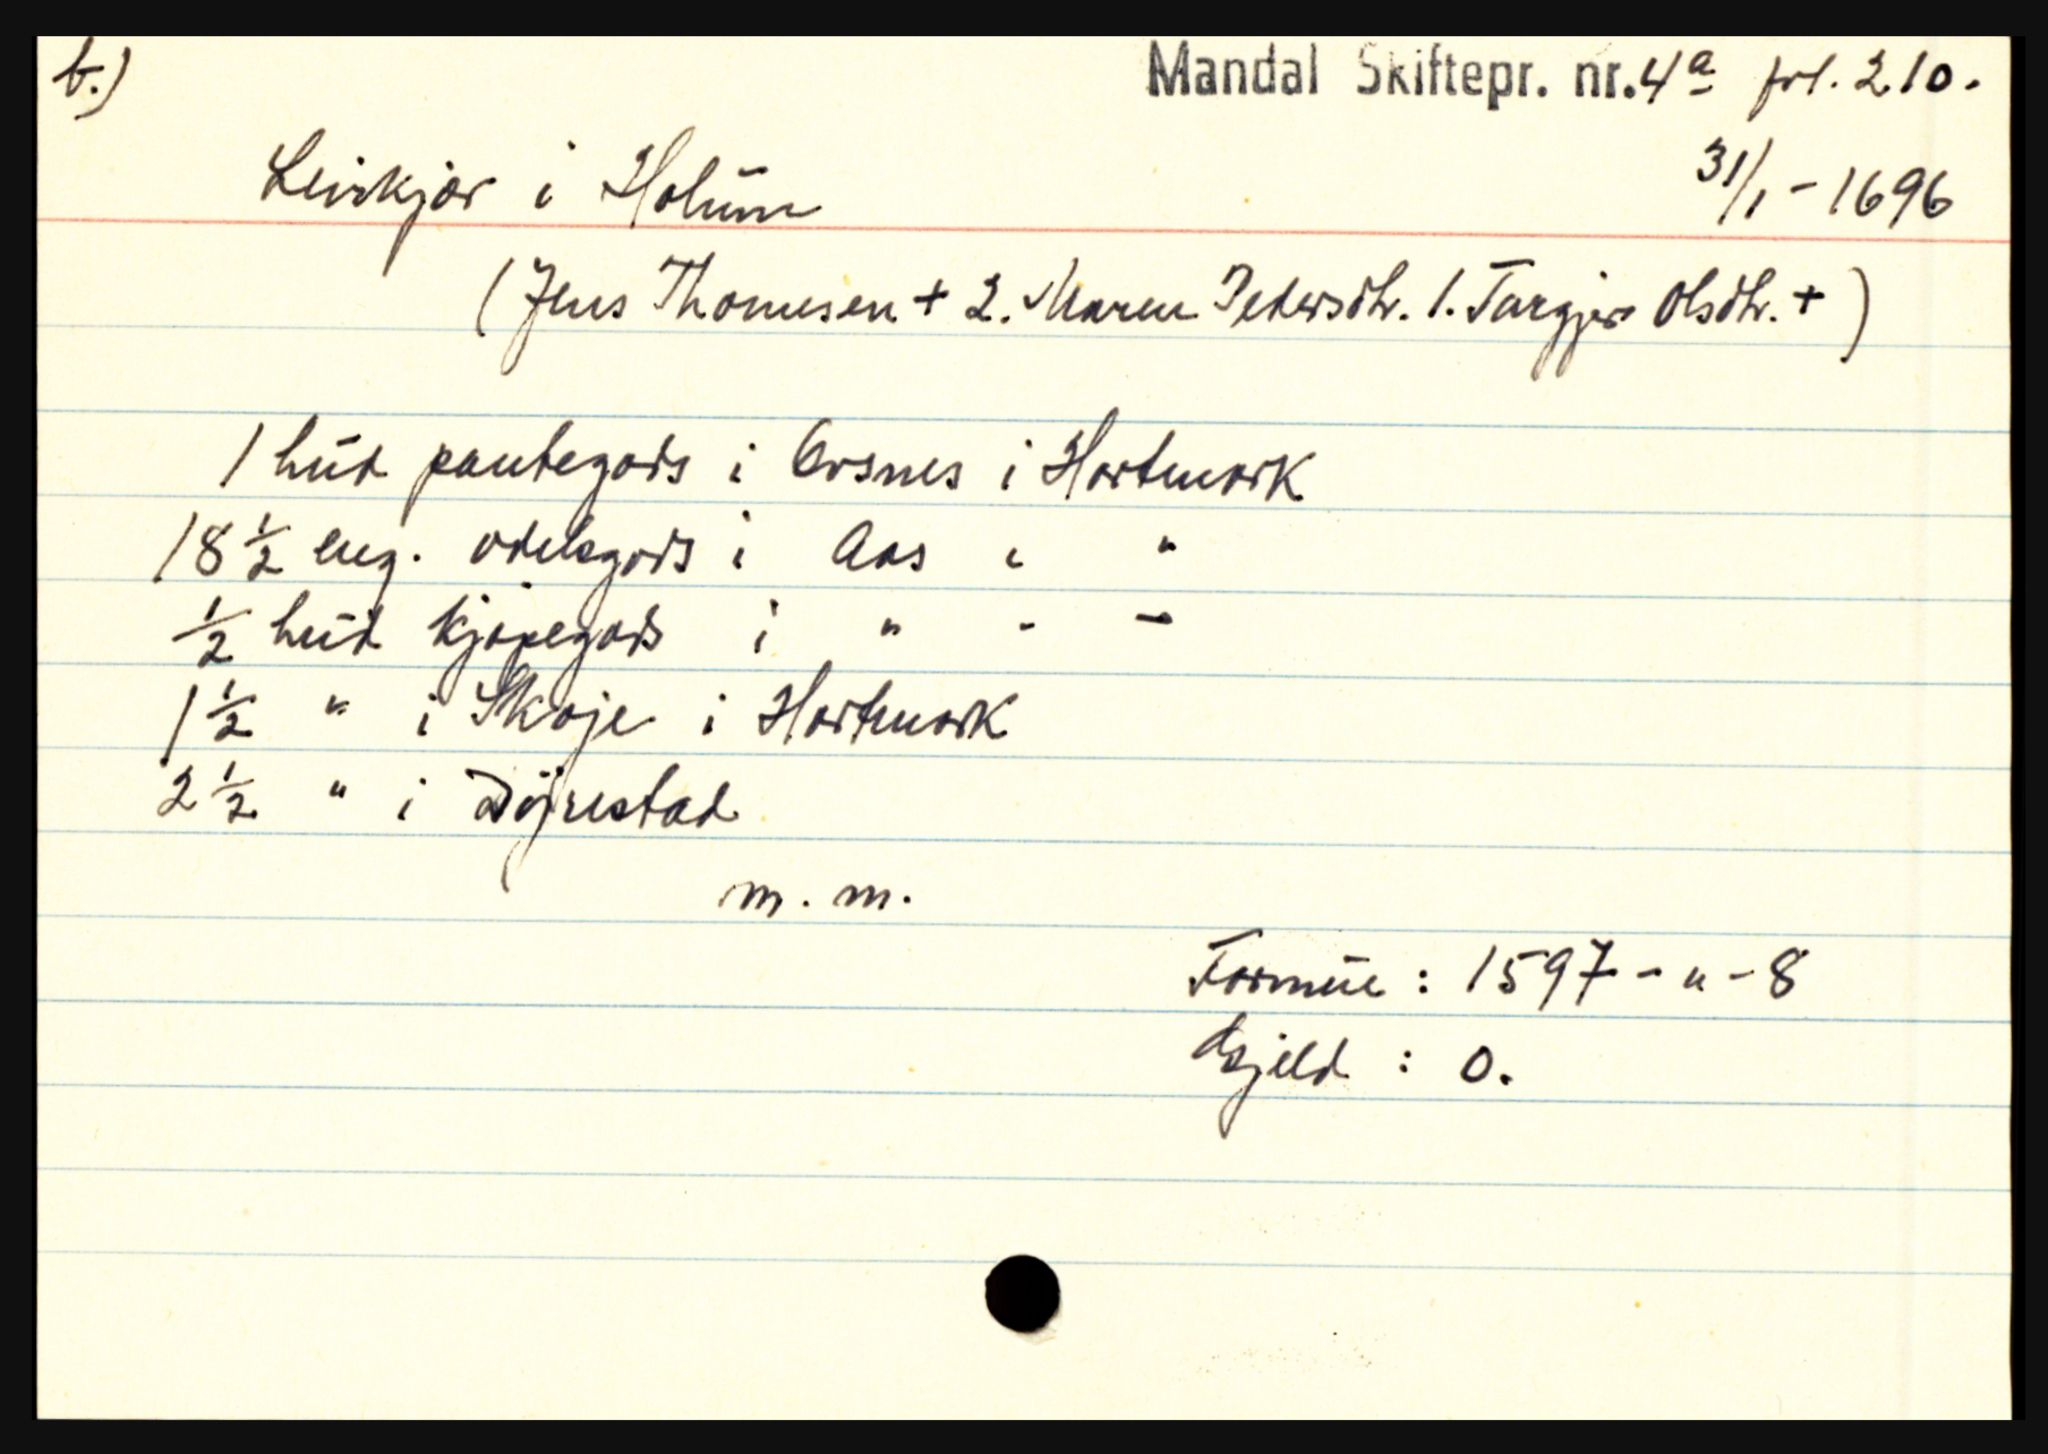 b.)
Mandal Skiftepr. nr. 4a fol. 210.
Leirkjær i Holum
31/1 - 1696
(Jens Thomesen + 2. Maren Pedersdtr. 1. Targjer Olsdtr. +)
1 hud pantegods i Aasnes i Hartmark
18 1/2 eng. odelsgods i Aas i "
1/2 hud kjøpegods i " - -
1 1/2 " i Skøje i Hartmark
2 1/2 " i Döjrestad
m. m.
Formue : 1597 - " - 8
Gjeld : 0.